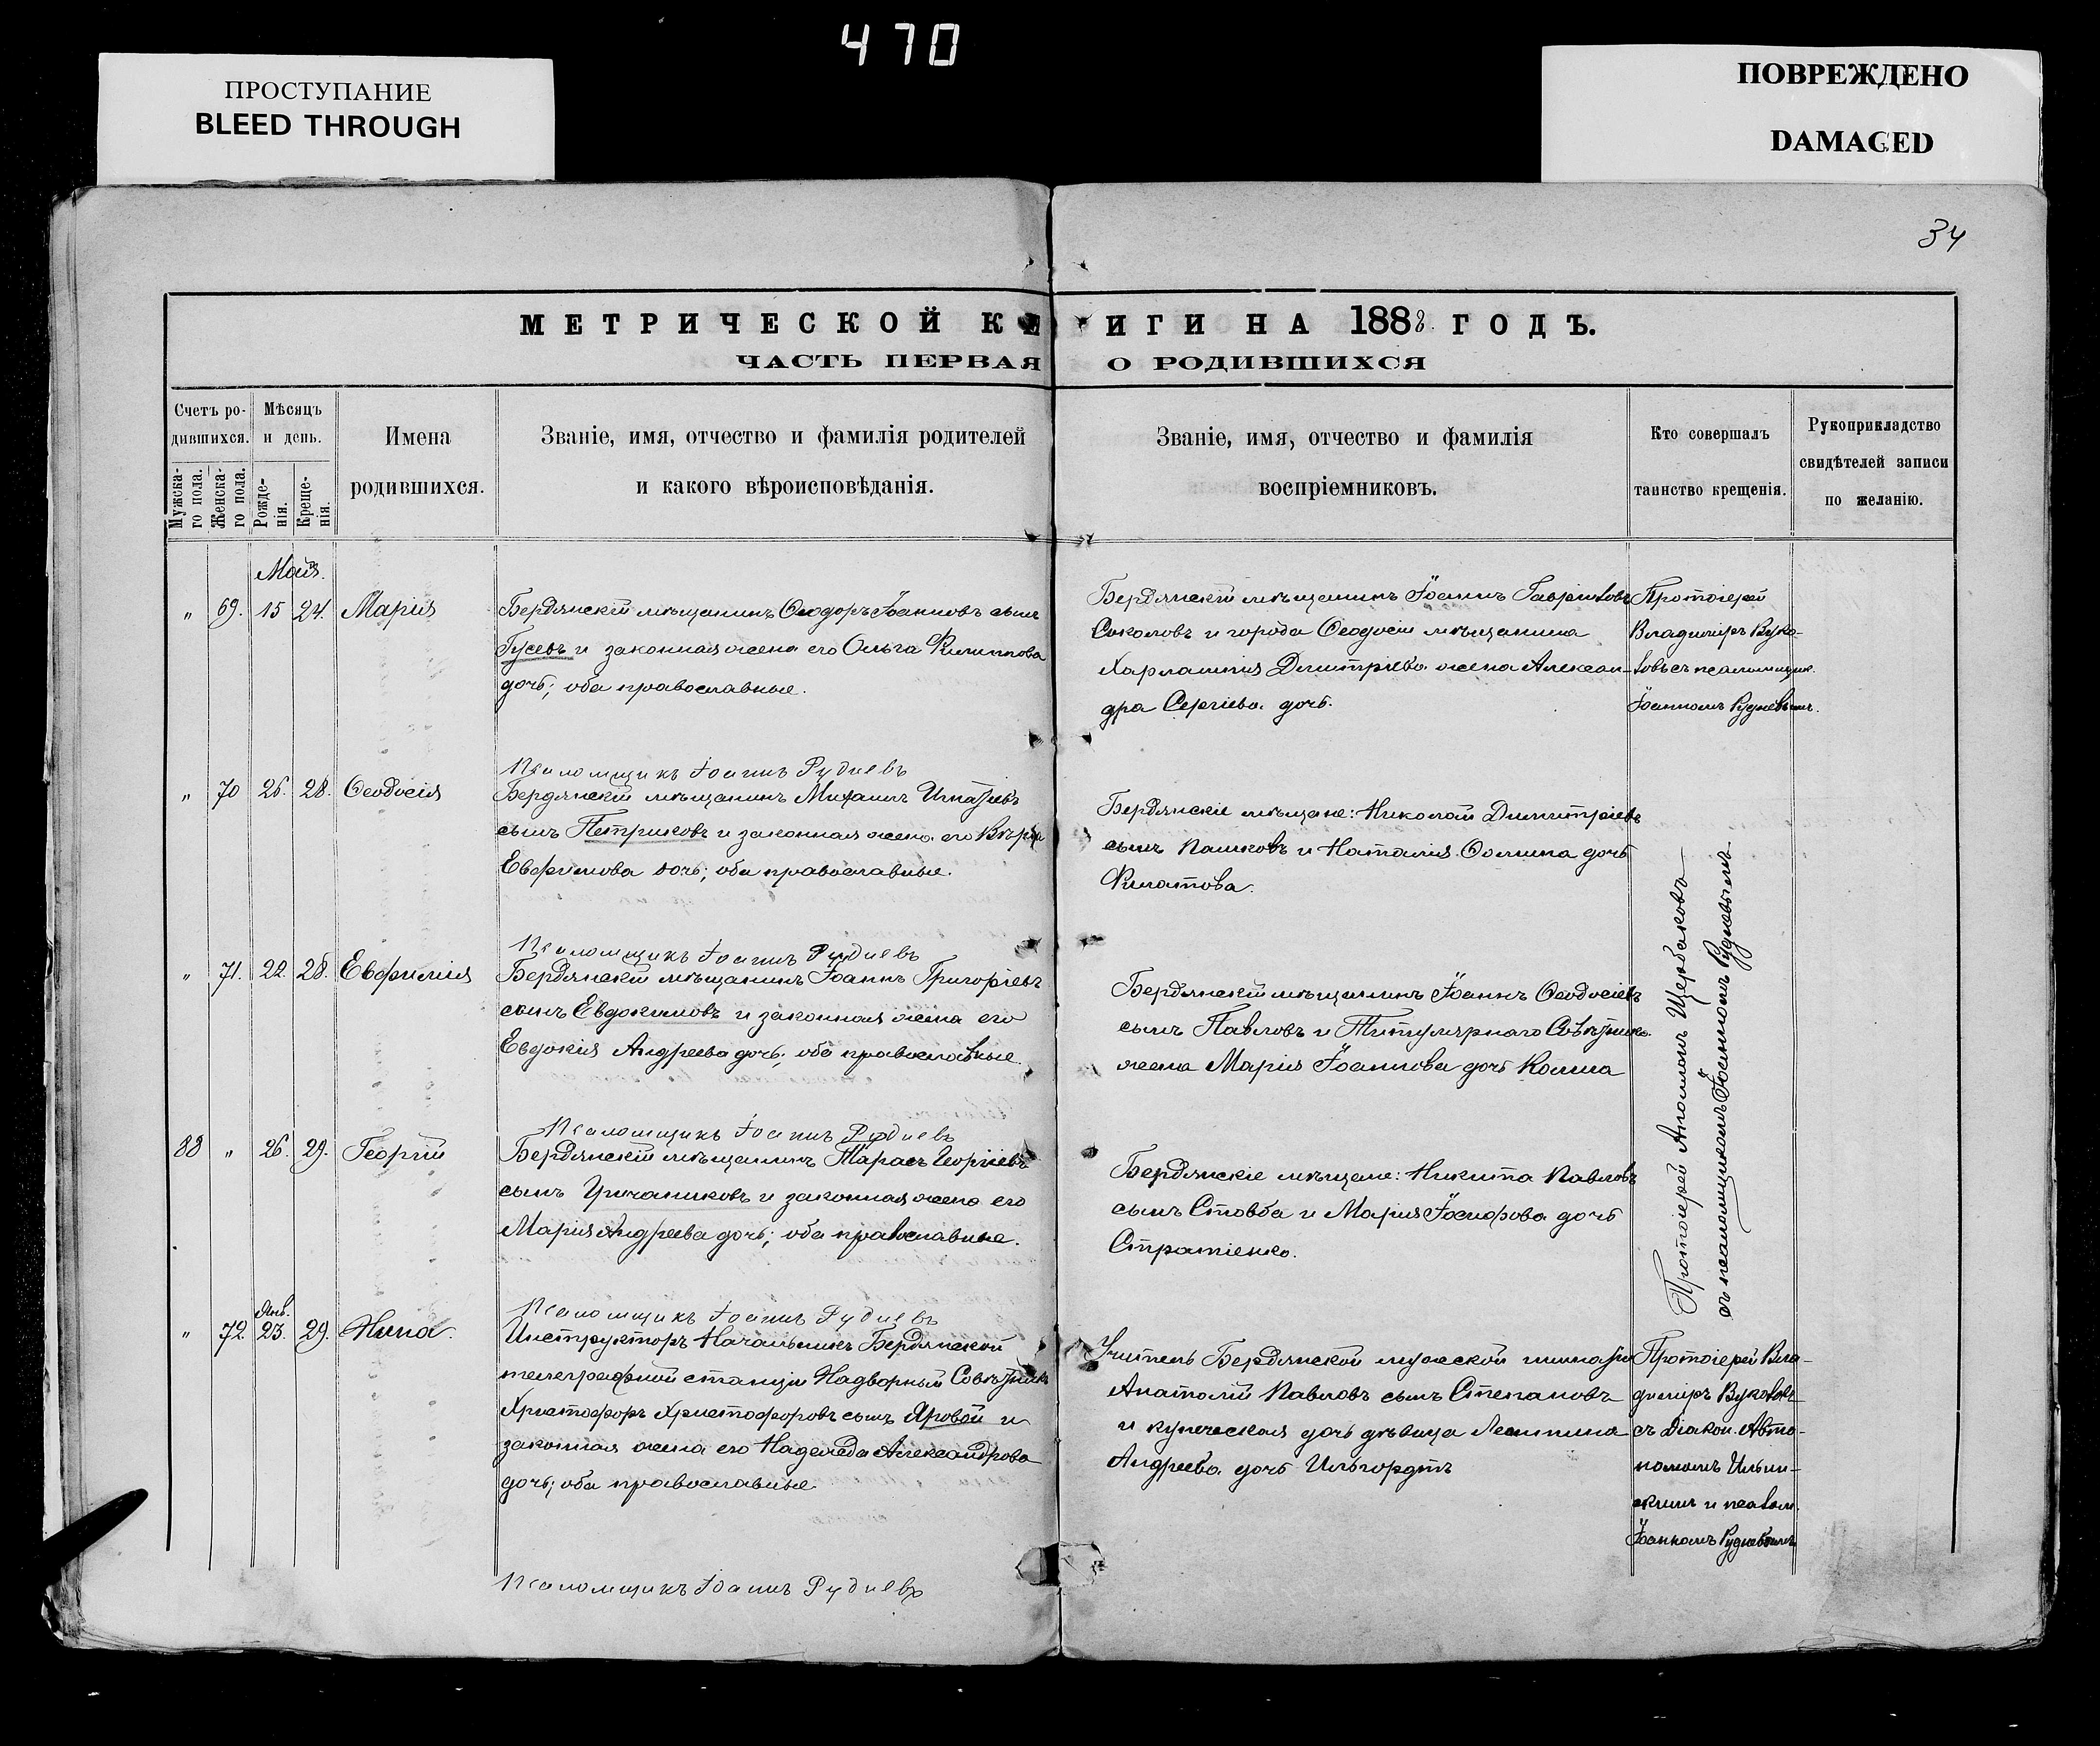 470
ПРОСТУПАНИЕ
BLEED THROUGH
ПОВРЕЖДЕНО
DAMAGED
34
МЕТРИЧЕСКОЙ КНИГИ НА 1888 ГОДЪ.
ЧАСТЬ ПЕРВАЯ О РОДИВШИХСЯ
Счетъ ро-
дившихся.
Мужска-
го пола.
Женска-
го пола.
Мѣсяцъ
и день.
Рожде-
нія.
Креще-
нія.
Имена
родившихся.
Званіе, имя, отчество и фамилія родителей
и какого вѣроисповѣданія.
Званіе, имя, отчество и фамилія
воспріемниковъ.
Кто совершалъ
таинство крещенія.
Рукоприкладство
свидѣтелей записи
по желанію.
Май.
" 69. 15 24. Марія
Бердянскій мѣщанинъ Ѳеодоръ Іоанновъ сынъ
Гусевъ и законная жена его Ольга Филиппова
дочь; оба православные.
Бердянскій мѣщанинъ Іоаннъ Гавріиловъ
Соколовъ и города Ѳеодосіи мѣщанина
Харлампія Димитріева жена Алексан-
дра Сергіева дочь.
Протоіерей
Владиміръ Вуко-
ловъ съ псаломщик.
Іоанномъ Рудневымъ.
Псаломщикъ Іоаннъ Рудневъ
" 70 26. 28. Ѳеодосія
Бердянскій мѣщанинъ Михаилъ Игнатіевъ
сынъ Петриковъ и законная жена его Вѣра
Евфимова дочь; оба православные.
Бердянскіе мѣщане: Николай Димитріевъ
сынъ Пашковъ и Наталія Ѳомина дочь
Филатова.
Псаломщикъ Іоаннъ Рудневъ
" 71. 22. 28. Евфимія
Бердянскій мѣщанинъ Іоаннъ Григоріевъ
сынъ Евдокимовъ и законная жена его
Евдокія Андреева дочь; оба православные.
Бердянскій мѣщанинъ Іоаннъ Ѳеодосіевъ
сынъ Павловъ и Титулярнаго Совѣтника
жена Марія Іоаннова дочь
Псаломщикъ Іоаннъ Рудневъ
88 " 26. 29. Георгій
Бердянскій мѣщанинъ Тарасъ Георгіевъ
сынъ и законная жена его
Марія Андреева дочь; оба православные.
Бердянскіе мѣщане: Никита Павловъ
сынъ Стовба и Марія Іосифова дочь
Протоіерей Аполлонъ Щербаковъ
съ псаломщикомъ Іоанномъ Рудневымъ
Псаломщикъ Іоаннъ Рудневъ
Янв.
" 72. 23. 29. Нина.
Инструкторъ Начальникъ Бердянской
телеграфной станціи Надворный Совѣтникъ
Христофоръ Христофоровъ сынъ Яровой и
законная жена его Надежда Александрова
дочь; оба православные
Учитель Бердянской мужской гимназіи
Анатолій Павловъ сынъ Степановъ
и купеческая дочь дѣвица Леонтина
Андреева дочь Ильгордтъ
Протоіерей Вла-
диміръ Вуколовъ
съ Діакон. Авто-
номомъ Ильин-
скимъ и псалом.
Іоанномъ Рудневымъ
Псаломщикъ Іоаннъ Рудневъ